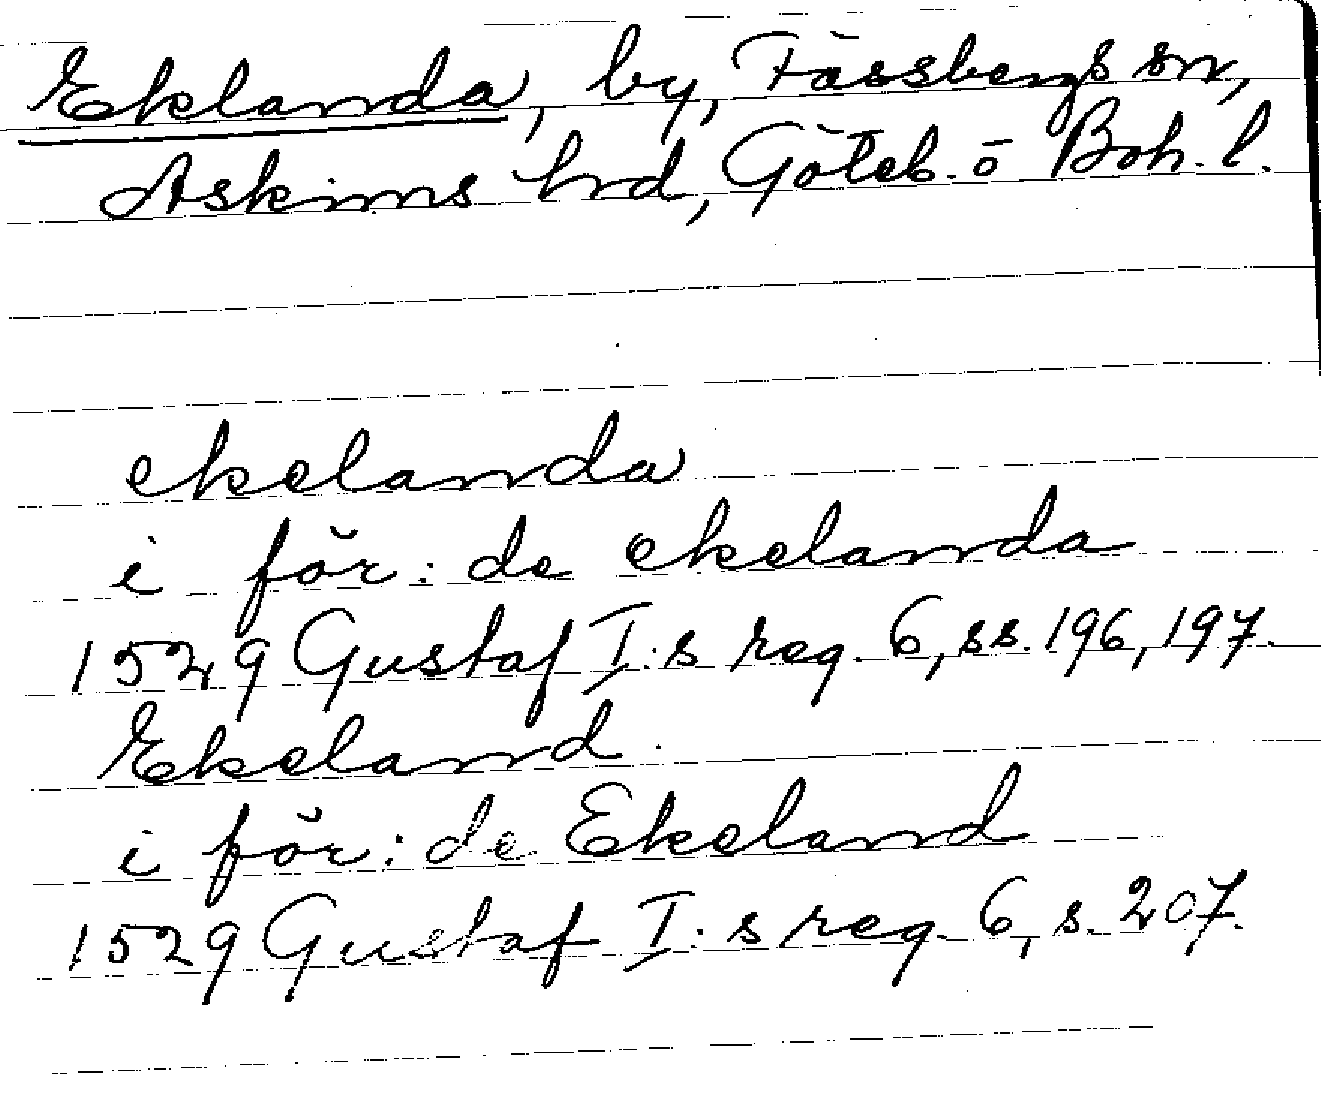 Eklanda, by, Fässbergs sn,
Askims hd, Göteb. o Boh. l.
ekelanda
i för: de ekelanda
1529 Gustaf I:s reg. 6, ss. 196, 197.
Ekeland
i för: de Ekeland
1529 Gustaf I:s reg. 6, s. 207.